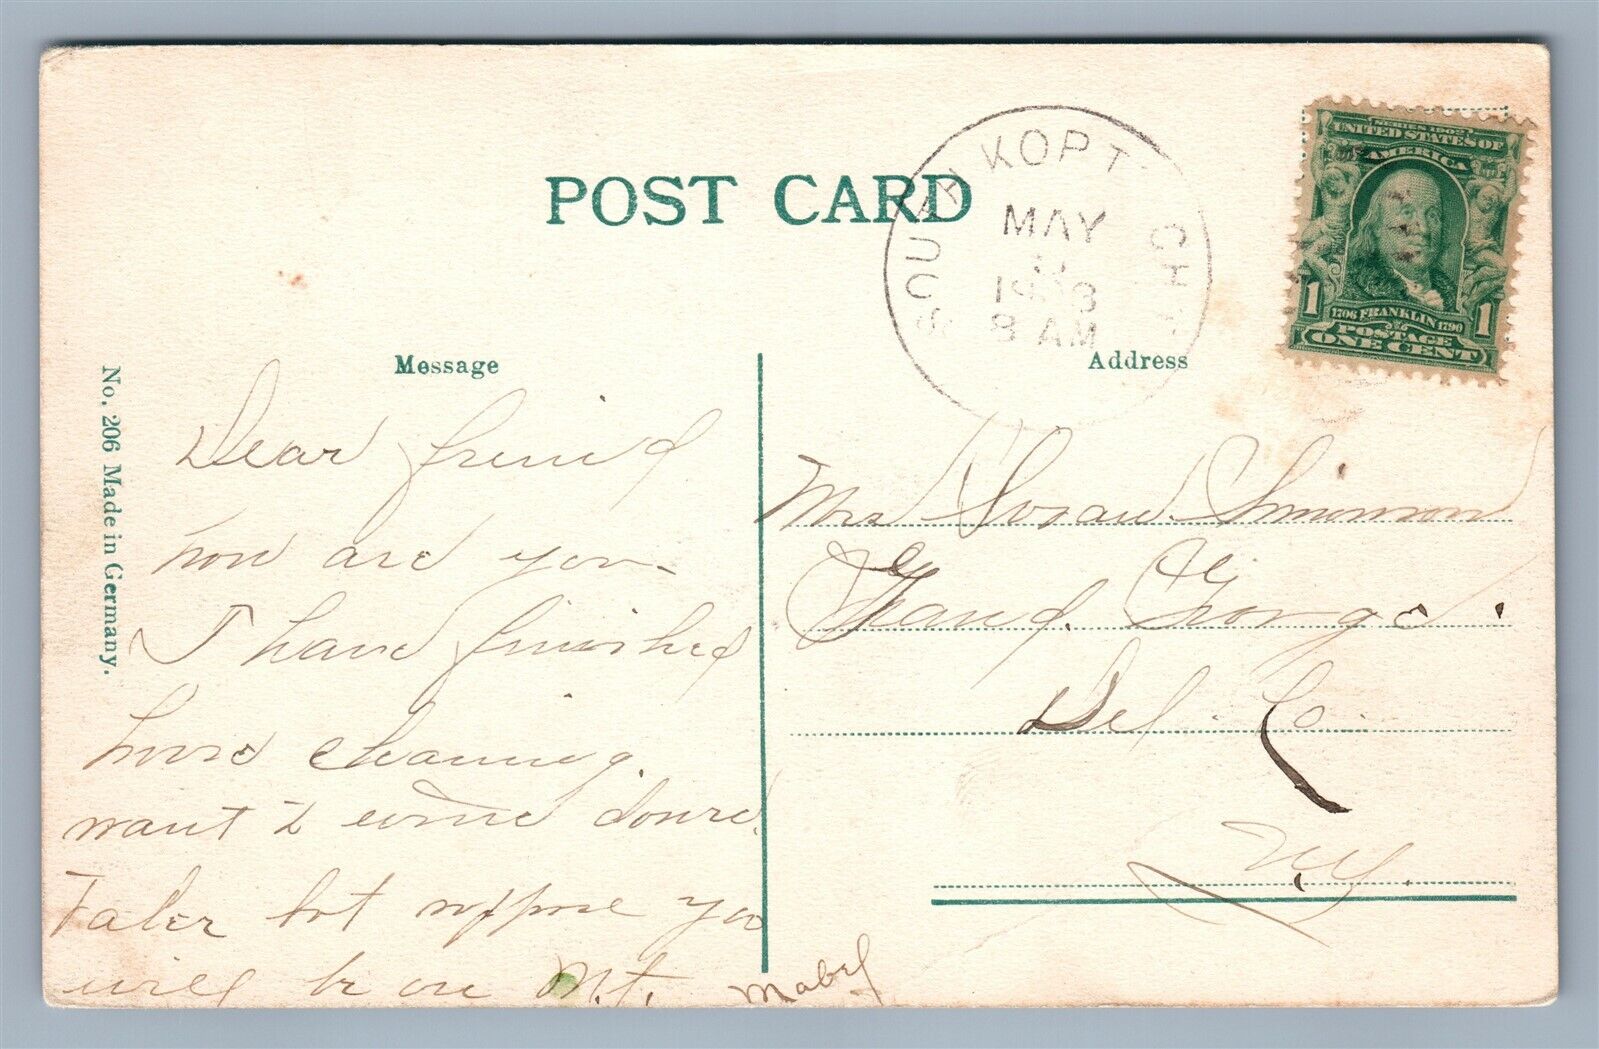 POST CARD
KOPT
MAY
8 AM
SERIES 1902
UNITED STATES OF
AMERICA
1 1
1706 FRANKLIN 1790
POSTAGE
ONE CENT
Message
Address
No. 206 Made in Germany.
Dear friend
how are you
I have finished
house cleaning.
want to come down
but suppose you
will be on Mt.
Mabel
Mrs Susan Simonson
Grand Gorge
Del. Co.
N.Y.